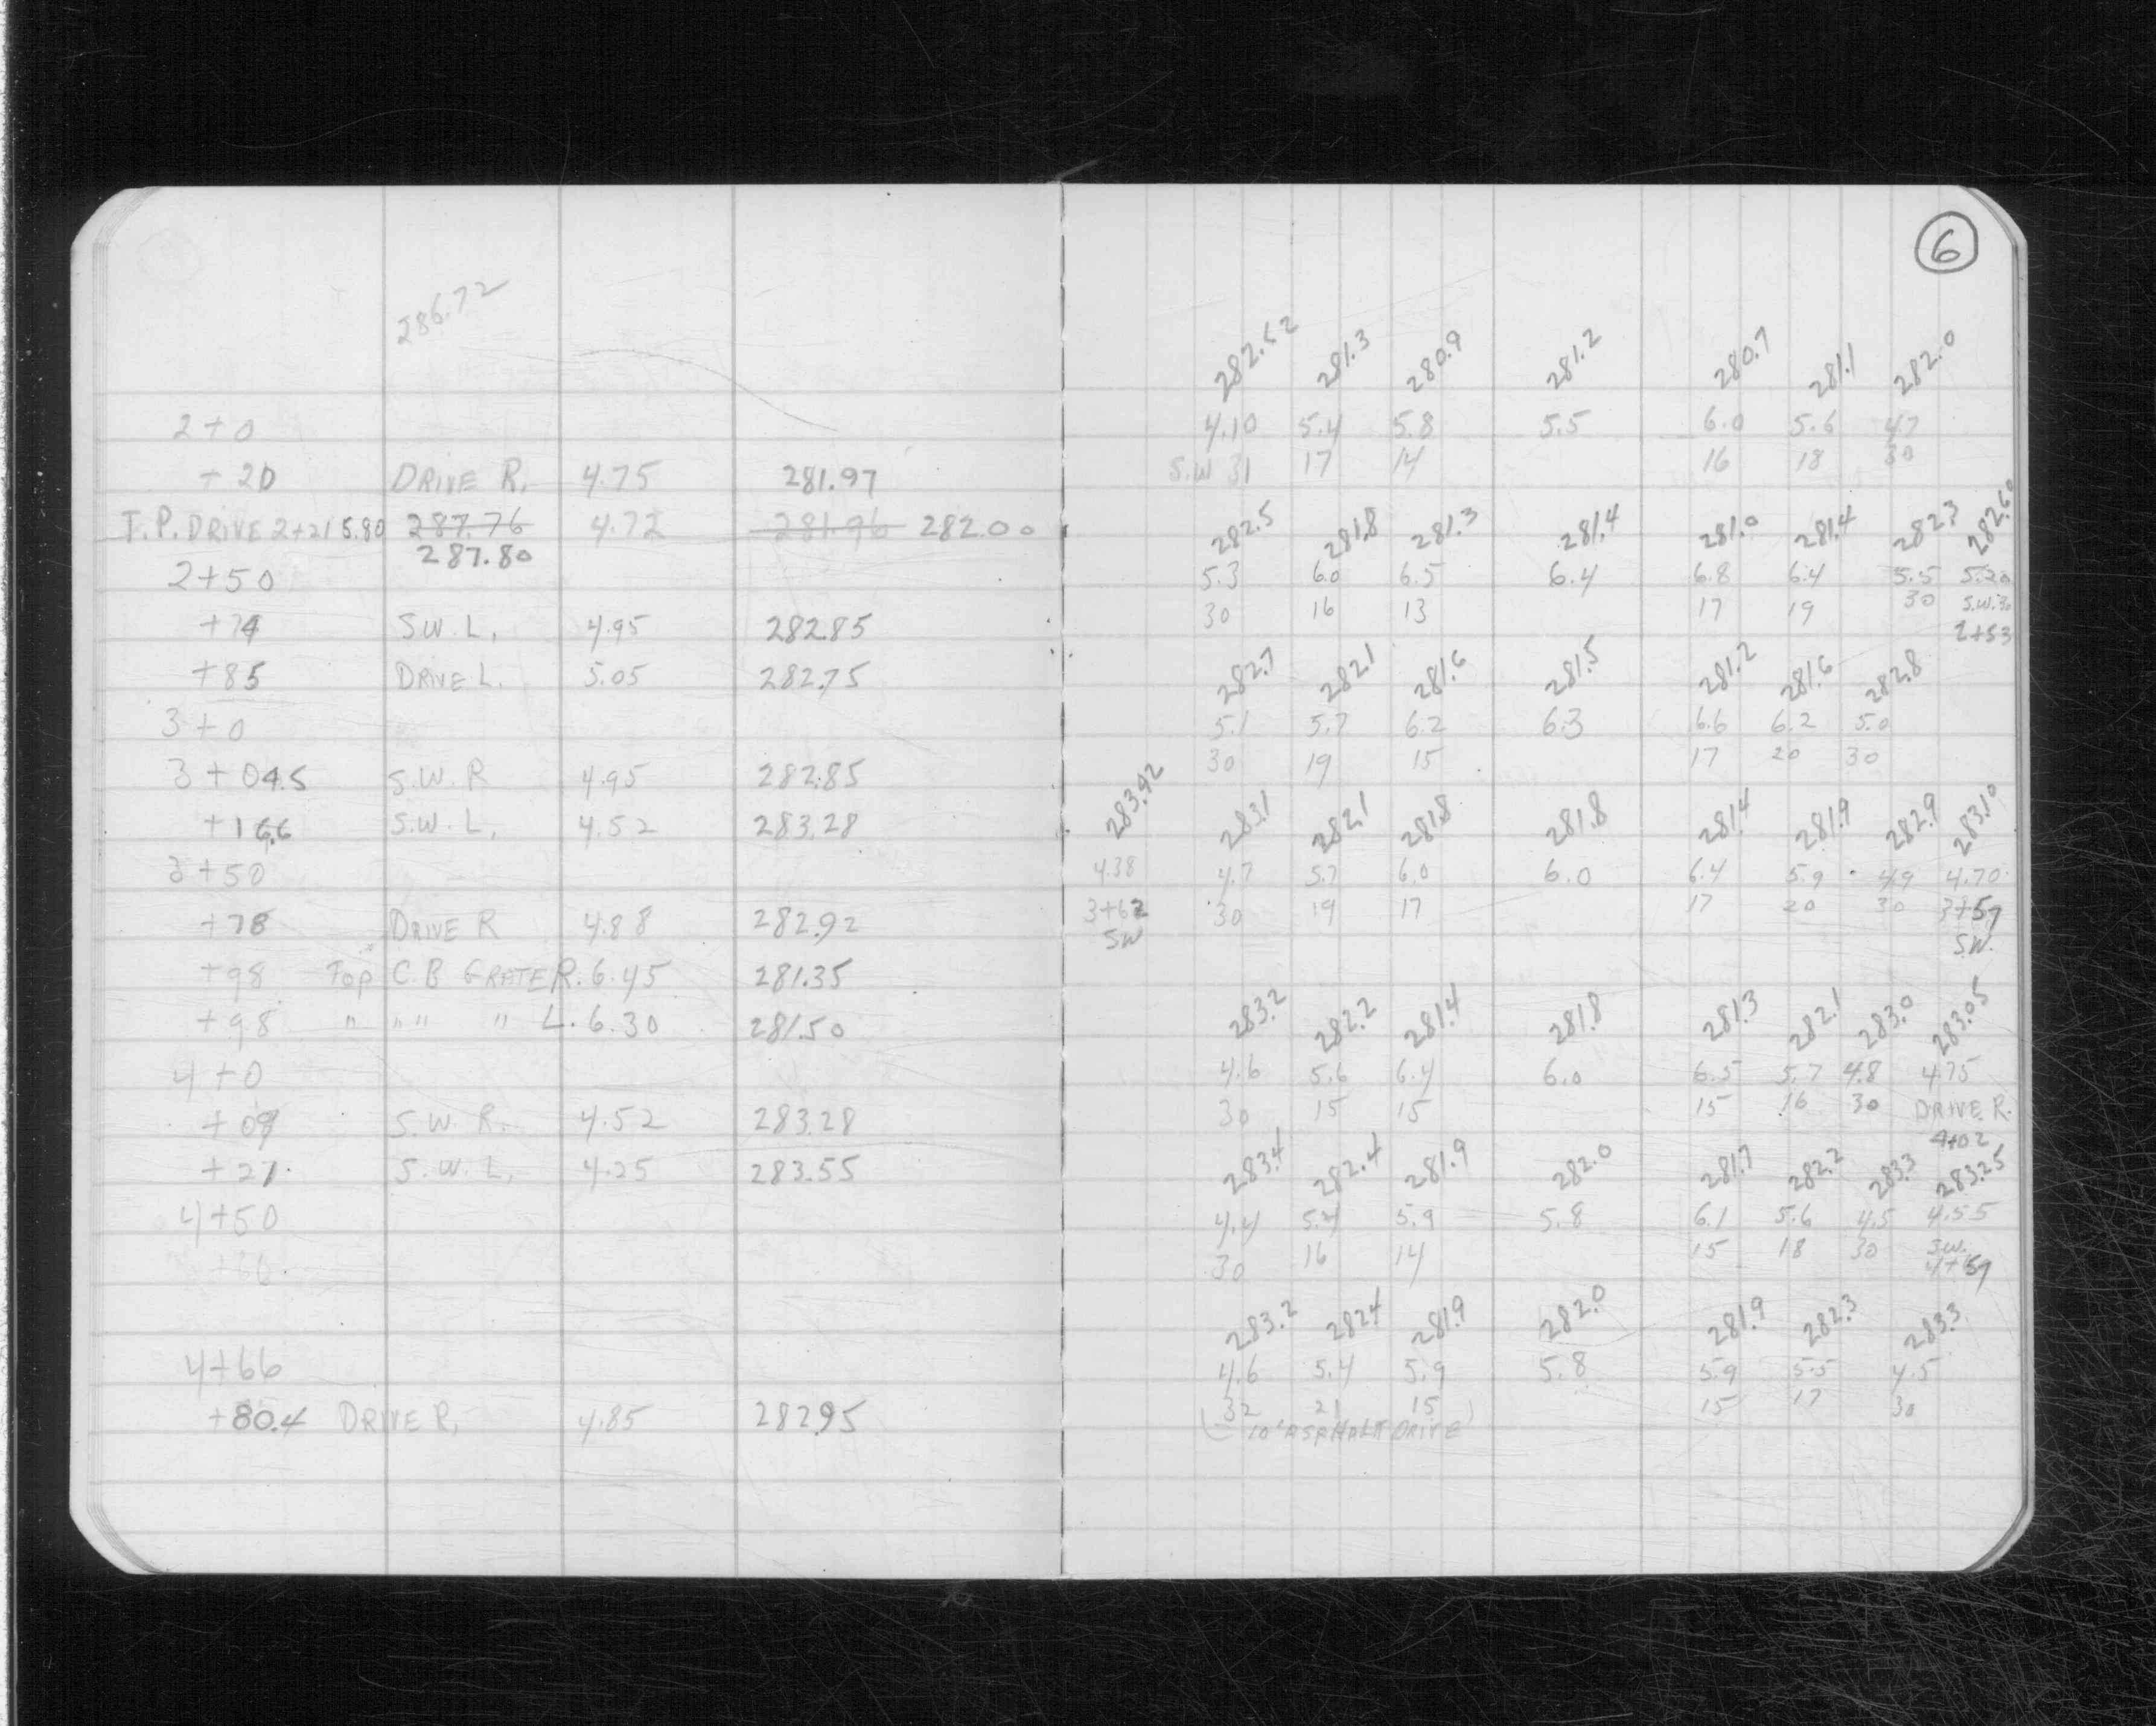 286.72
2+0
+20 DRIVE R. 4.75 281.97
T.P. DRIVE 2+21 5.80 287.76 4.72 281.96 282.00
287.80
2+50
+74 S.W. L. 4.95 282.85
+85 DRIVE L. 5.05 282.75
3+0
3+04.5 S.W. R 4.95 282.85
+16.6 S.W. L. 4.52 283.28
3+50
+78 DRIVE R 4.88 282.92
+98 TOP C B GRATE R. 6.45 281.35
+98 " " " " L. 6.30 281.50
4+0
+09 S.W. R. 4.52 283.28
+27 S.W. L. 4.25 283.55
4+50
+66
4+66
+80.4 DRIVE R. 4.85 282.95
6
282.62 281.3 280.9 281.2 280.7 281.1 282.0
4.10 5.4 5.8 5.5 6.0 5.6 4.7
S.W 31 17 14 16 18 30
282.5 281.8 281.3 281.4 281.0 281.4 282.3 282.60
5.3 6.0 6.5 6.4 6.8 6.4 5.5 5.20
30 16 13 17 19 30 S.W. 30
2+53
282.7 282.1 281.6 281.5 281.2 281.6 282.8
5.1 5.7 6.2 6.3 6.6 6.2 5.0
30 19 15 17 20 30
283.92 283.1 282.1 281.8 281.8 281.4 281.9 282.9 283.10
4.38 4.7 5.7 6.0 6.0 6.4 5.9 4.9 4.70
3+62 30 19 17 17 20 30 3+57
SW SW.
283.2 282.2 281.4 281.8 281.3 282.1 283.0 283.05
4.6 5.6 6.4 6.0 6.5 5.7 4.8 4.75
30 15 15 15 16 30 DRIVE R.
4+02
283.4 282.4 281.9 282.0 281.7 282.2 283.3 283.25
4.4 5.4 5.9 5.8 6.1 5.6 4.5 4.55
30 16 14 15 18 30 S.W.
4+57
283.2 282.4 281.9 282.0 281.9 282.3 283.3
4.6 5.4 5.9 5.8 5.9 5.5 4.5
32 21 15 15 17 30
10' ASPHALT DRIVE